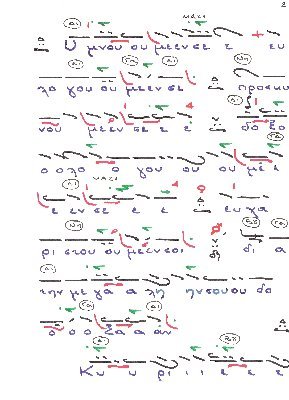 2
ΜΑΖΙ
Υ μνου ου με εν σε ε ευ
λο γου ου με εν σε προσκυ
νου με εν σε ε ε δο ξο
ο ο λο ο γου ου ου με ε
ΜΑΖΙ
ε εν σε ε ε ευ χα
ρι στου ου με εν σοι δι α
την με γα α λη ην σου ου δο
ο ο ο ξα α αν
Κυ υ ρι ι ι ε ε ε